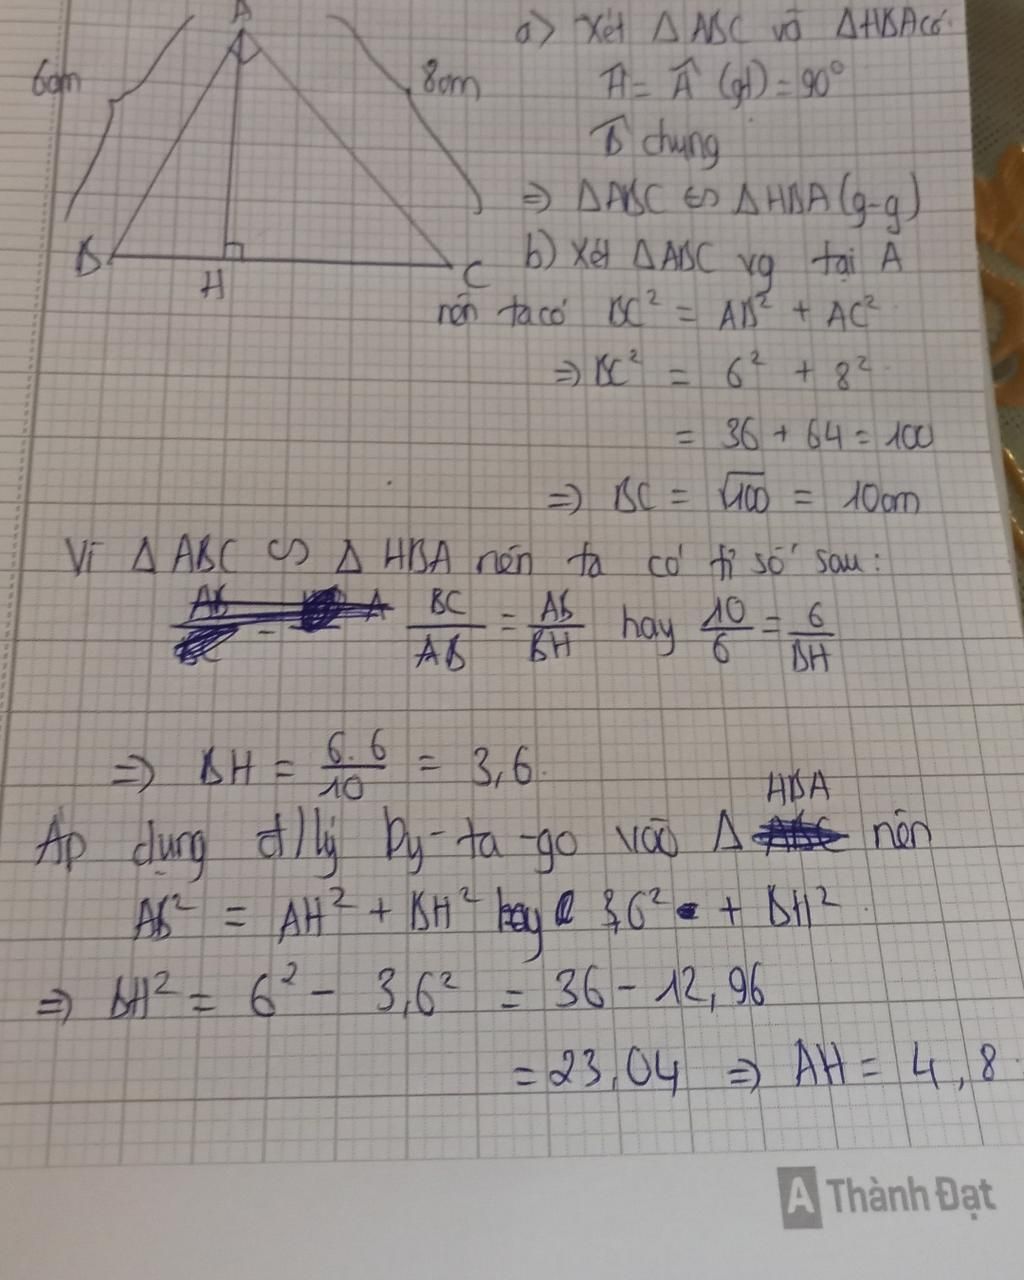 A
6cm
8cm
B
H
C
a) Xét Δ ABC và ΔHBA có
Â = Â (gt) = 90°
B̂ chung
⇒ ΔABC ∽ ΔHBA (g-g)
b) Xét ΔABC vg tại A
nên ta có BC² = AB² + AC²
⇒ BC² = 6² + 8²
= 36 + 64 = 100
⇒ BC = √100 = 10cm
Vì Δ ABC ∽ Δ HBA nên ta có tỉ số sau:
BC/AB = AB/BH hay 10/6 = 6/BH
⇒ BH = 6.6/10 = 3,6.
Áp dụng đ/lý Py-ta-go vào Δ HBA nên
AB² = AH² + BH² hay 3,6² + BH².
⇒ BH² = 6² - 3,6² = 36 - 12,96
= 23,04 ⇒ AH = 4,8
A Thành Đạt